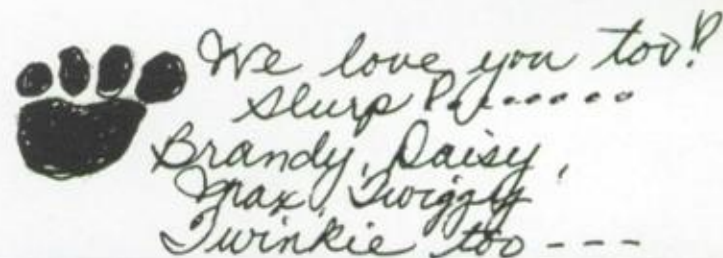 We love you too!
Slurp!.......
Brandy, Daisy,
Max, Twiggy
Twinkie too ---